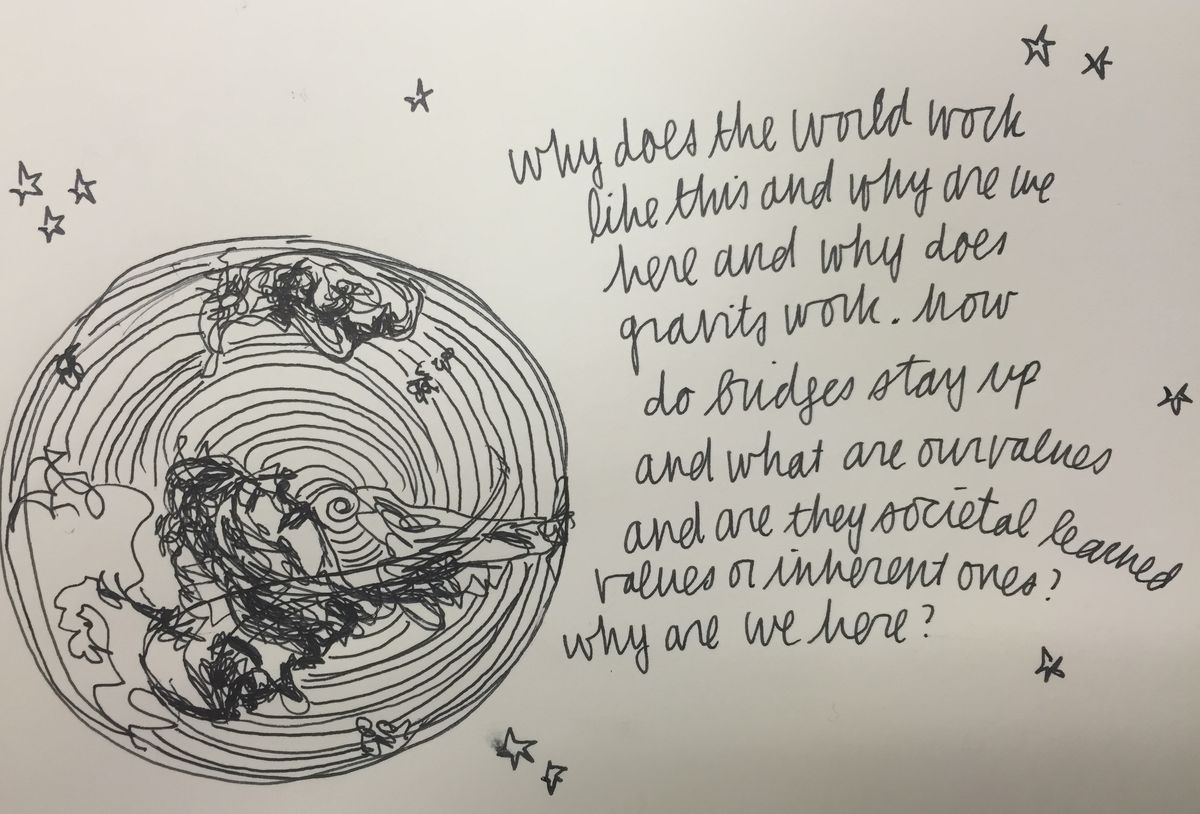 why does the world work
like this and why are we
here and why does
gravity work. how
do bridges stay up
and what are our values
and are they societal learned
values or inherent ones?
why are we here?